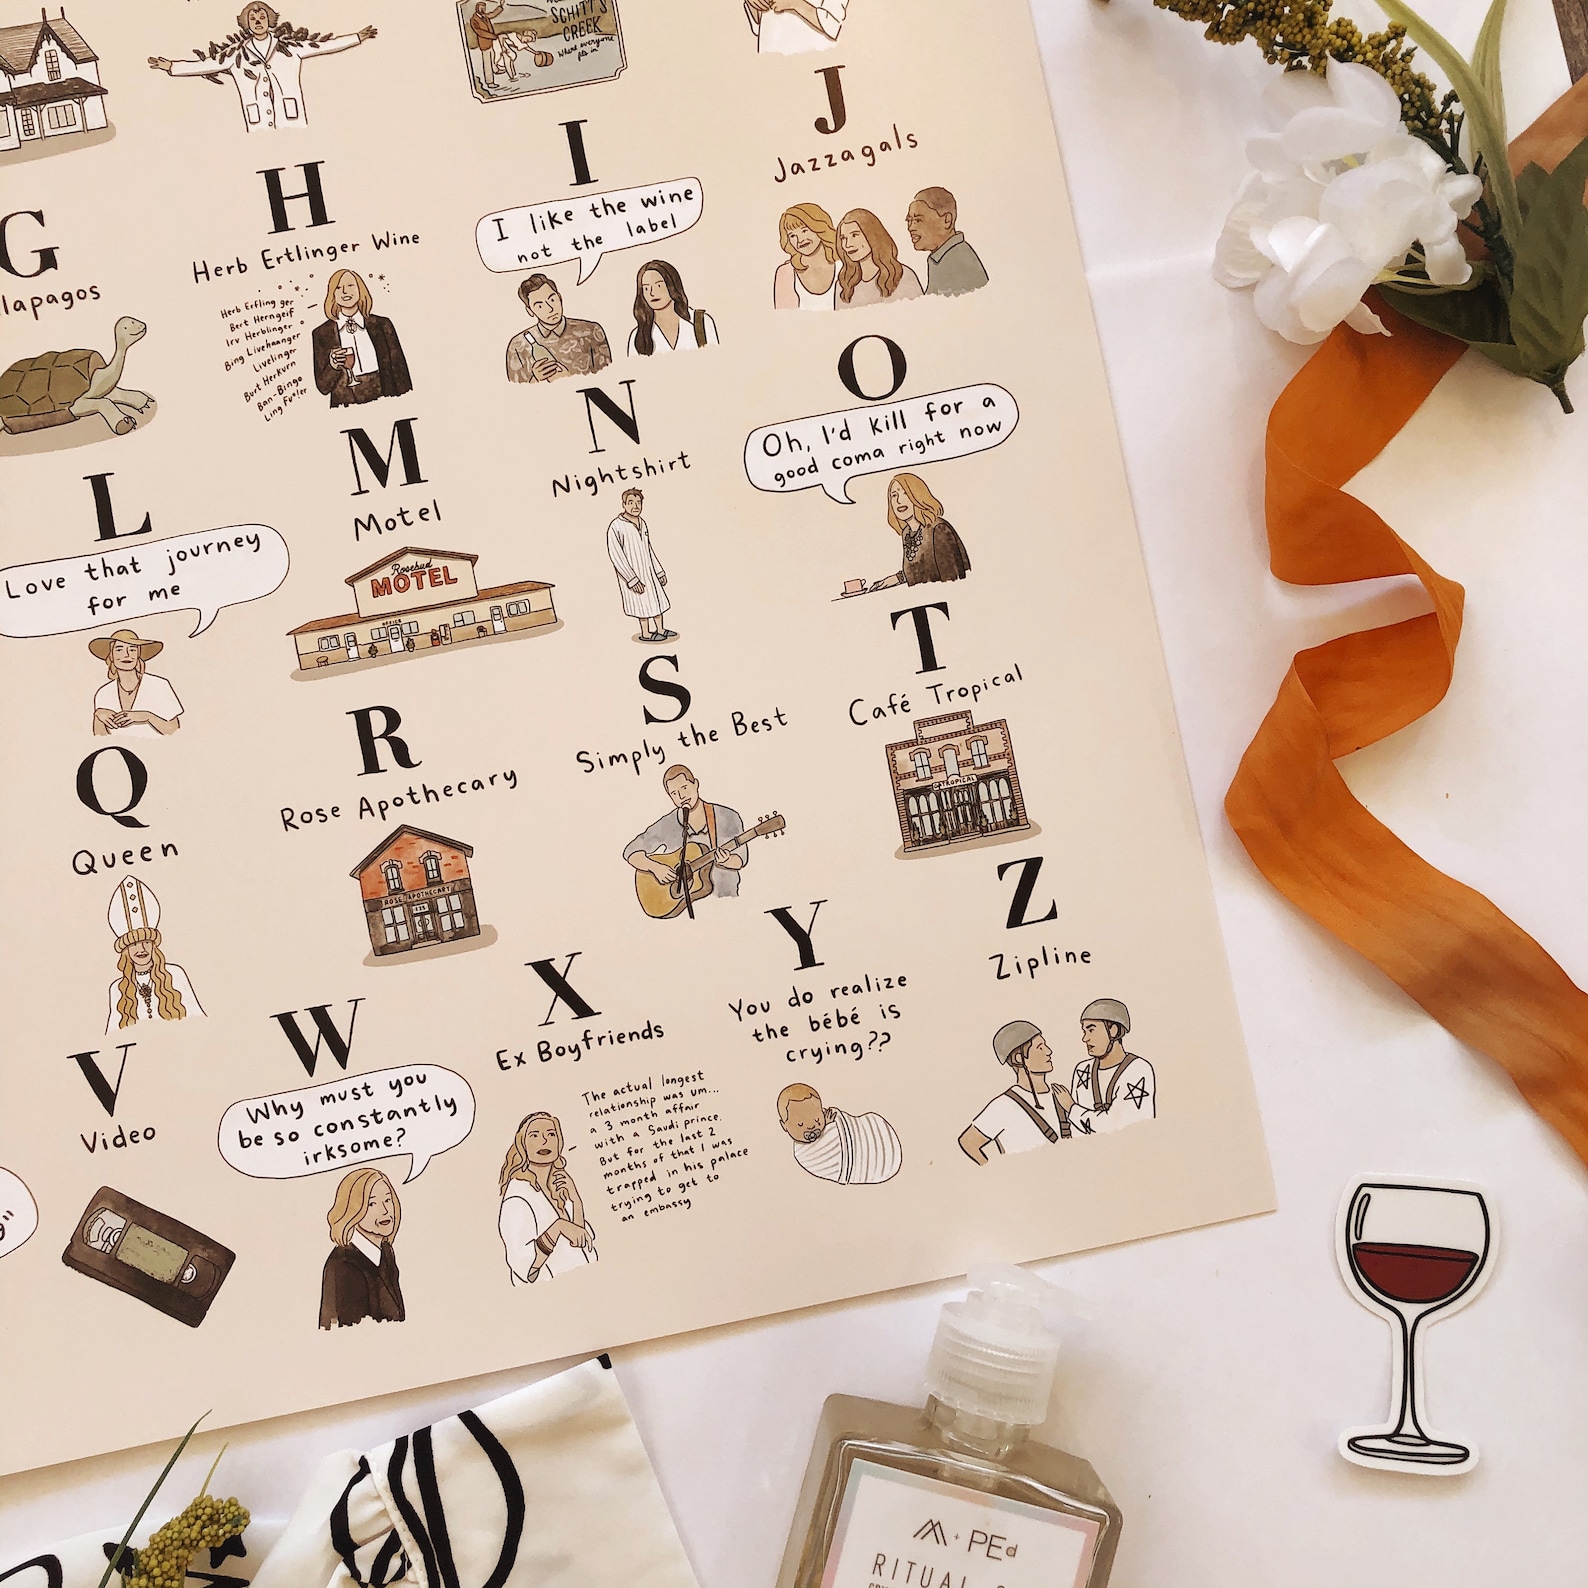 SCHITT'S
CREEK
Where everyone
fits in
G
lapagos
H
Herb Ertlinger Wine
Herb Erfling ger
Bert Herngeif
Irv Herblinger
Bing Livehaanger
Livelinger
Burt Herkurn
Ban-Bingo
Ling Fu*ler
I
I like the wine
not the label
J
Jazzagals
L
Love that journey
for me
M
Motel
Rosebud
MOTEL
OFFICE
N
Nightshirt
O
Oh, I'd kill for a
good coma right now
Q
Queen
R
Rose Apothecary
ROSE APOTHECARY
S
Simply the Best
T
Café Tropical
TROPICAL
V
Video
W
Why must you
be so constantly
irksome?
X
Ex Boyfriends
The actual longest
relationship was um...
a 3 month affair
with a Saudi prince.
But for the last 2
months of that I was
trapped in his palace
trying to get to
an embassy
Y
You do realize
the bébé is
crying??
Z
Zipline
PEd
RITUAL